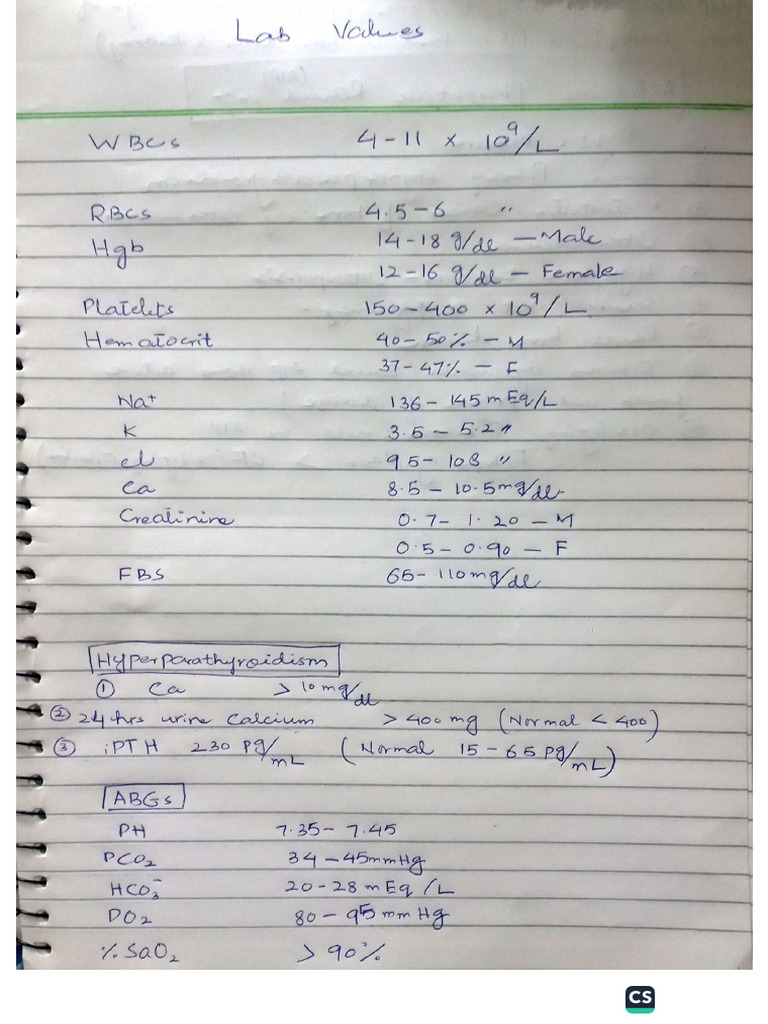 Lab Values
WBCs 4-11 x 10⁹/L
RBCs 4.5-6 "
Hgb 14-18 g/dl - Male
12-16 g/dl - Female
Platelets 150-400 x 10⁹/L
Hematocrit 40-50% - M
37-47% - F
Na⁺ 136-145 mEq/L
K 3.5-5.2 "
cl 95-108 "
Ca 8.5-10.5 mg/dl
Creatinine 0.7-1.20 - M
0.5-0.90 - F
FBS 65-110 mg/dl
Hyperparathyroidism
① Ca > 10 mg/dl
② 24 hrs urine Calcium > 400 mg (Normal < 400)
③ iPTH 230 pg/mL (Normal 15-65 pg/mL)
ABGs
PH 7.35-7.45
PCO₂ 34-45 mmHg
HCO₃⁻ 20-28 mEq/L
PO₂ 80-95 mmHg
% SaO₂ > 90%
CS